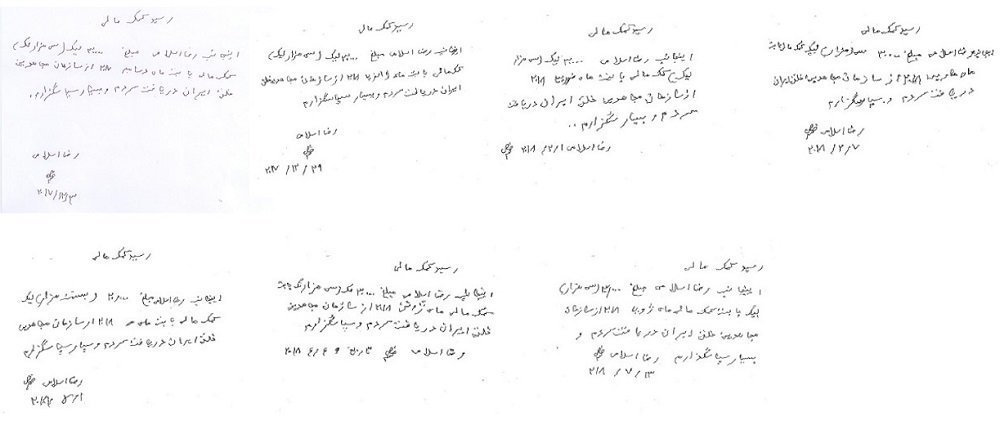 رسید کمک مالی
اینجانب رضا اسلامی مبلغ ۳۰۰۰۰ لیک (سی هزار لک)
کمک مالی بابت ماه دسامبر ۲۰۱۷ از سازمان مجاهدین
خلق ایران دریافت کردم و بسیار سپاسگزارم.
رضا اسلامی
رسید کمک مالی
اینجانب رضا اسلامی مبلغ ۳۰۰۰۰ لیک (سی هزار لیک)
کمک مالی بابت ماه ژانویه ۲۰۱۸ از سازمان مجاهدین خلق
ایران دریافت کردم و بسیار سپاسگزارم
رضا اسلامی
۲۰۱۷/۱۲/۲۹
رسید کمک مالی
اینجانب رضا اسلامی مبلغ ۳۰۰۰۰ لیک (سی هزار
لیک) کمک مالی بابت ماه فوریه ۲۰۱۸
از سازمان مجاهدین خلق ایران دریافت
کردم و بسیار سپاسگزارم..
رضا اسلامی ۲۰۱۸/۲/۱
رسید کمک مالی
اینجانب رضا اسلامی مبلغ ۳۰۰۰۰ (سی هزار) لیک کمک مالی بابت
ماه مارس ۲۰۱۸ از سازمان مجاهدین خلق ایران
دریافت کردم و سپاسگزارم
رضا اسلامی
۲۰۱۸/۳/۷
رسید کمک مالی
اینجانب رضا اسلامی مبلغ ۲۰۰۰۰ و بیست هزار) لیک
کمک مالی بابت ماه مه ۲۰۱۸ از سازمان مجاهدین
خلق ایران دریافت کردم و بسیار سپاسگزارم
رضا اسلامی
رسید کمک مالی
اینجانب رضا اسلامی مبلغ ۳۰۰۰۰ لک (سی هزار لک) بابت
کمک مالی ماه ژوئن ۲۰۱۸ از سازمان مجاهدین
خلق ایران دریافت کردم و سپاسگزارم
رضا اسلامی تاریخ
رسید کمک مالی
اینجانب رضا اسلامی مبلغ ۳۰۰۰۰ (سی هزار)
لیک بابت کمک مالی ماه ژوییه ۲۰۱۸ از سازمان
مجاهدین خلق ایران دریافت کردم و
بسیار سپاسگذارم رضا اسلامی
۲۰۱۸/۷/۱۳